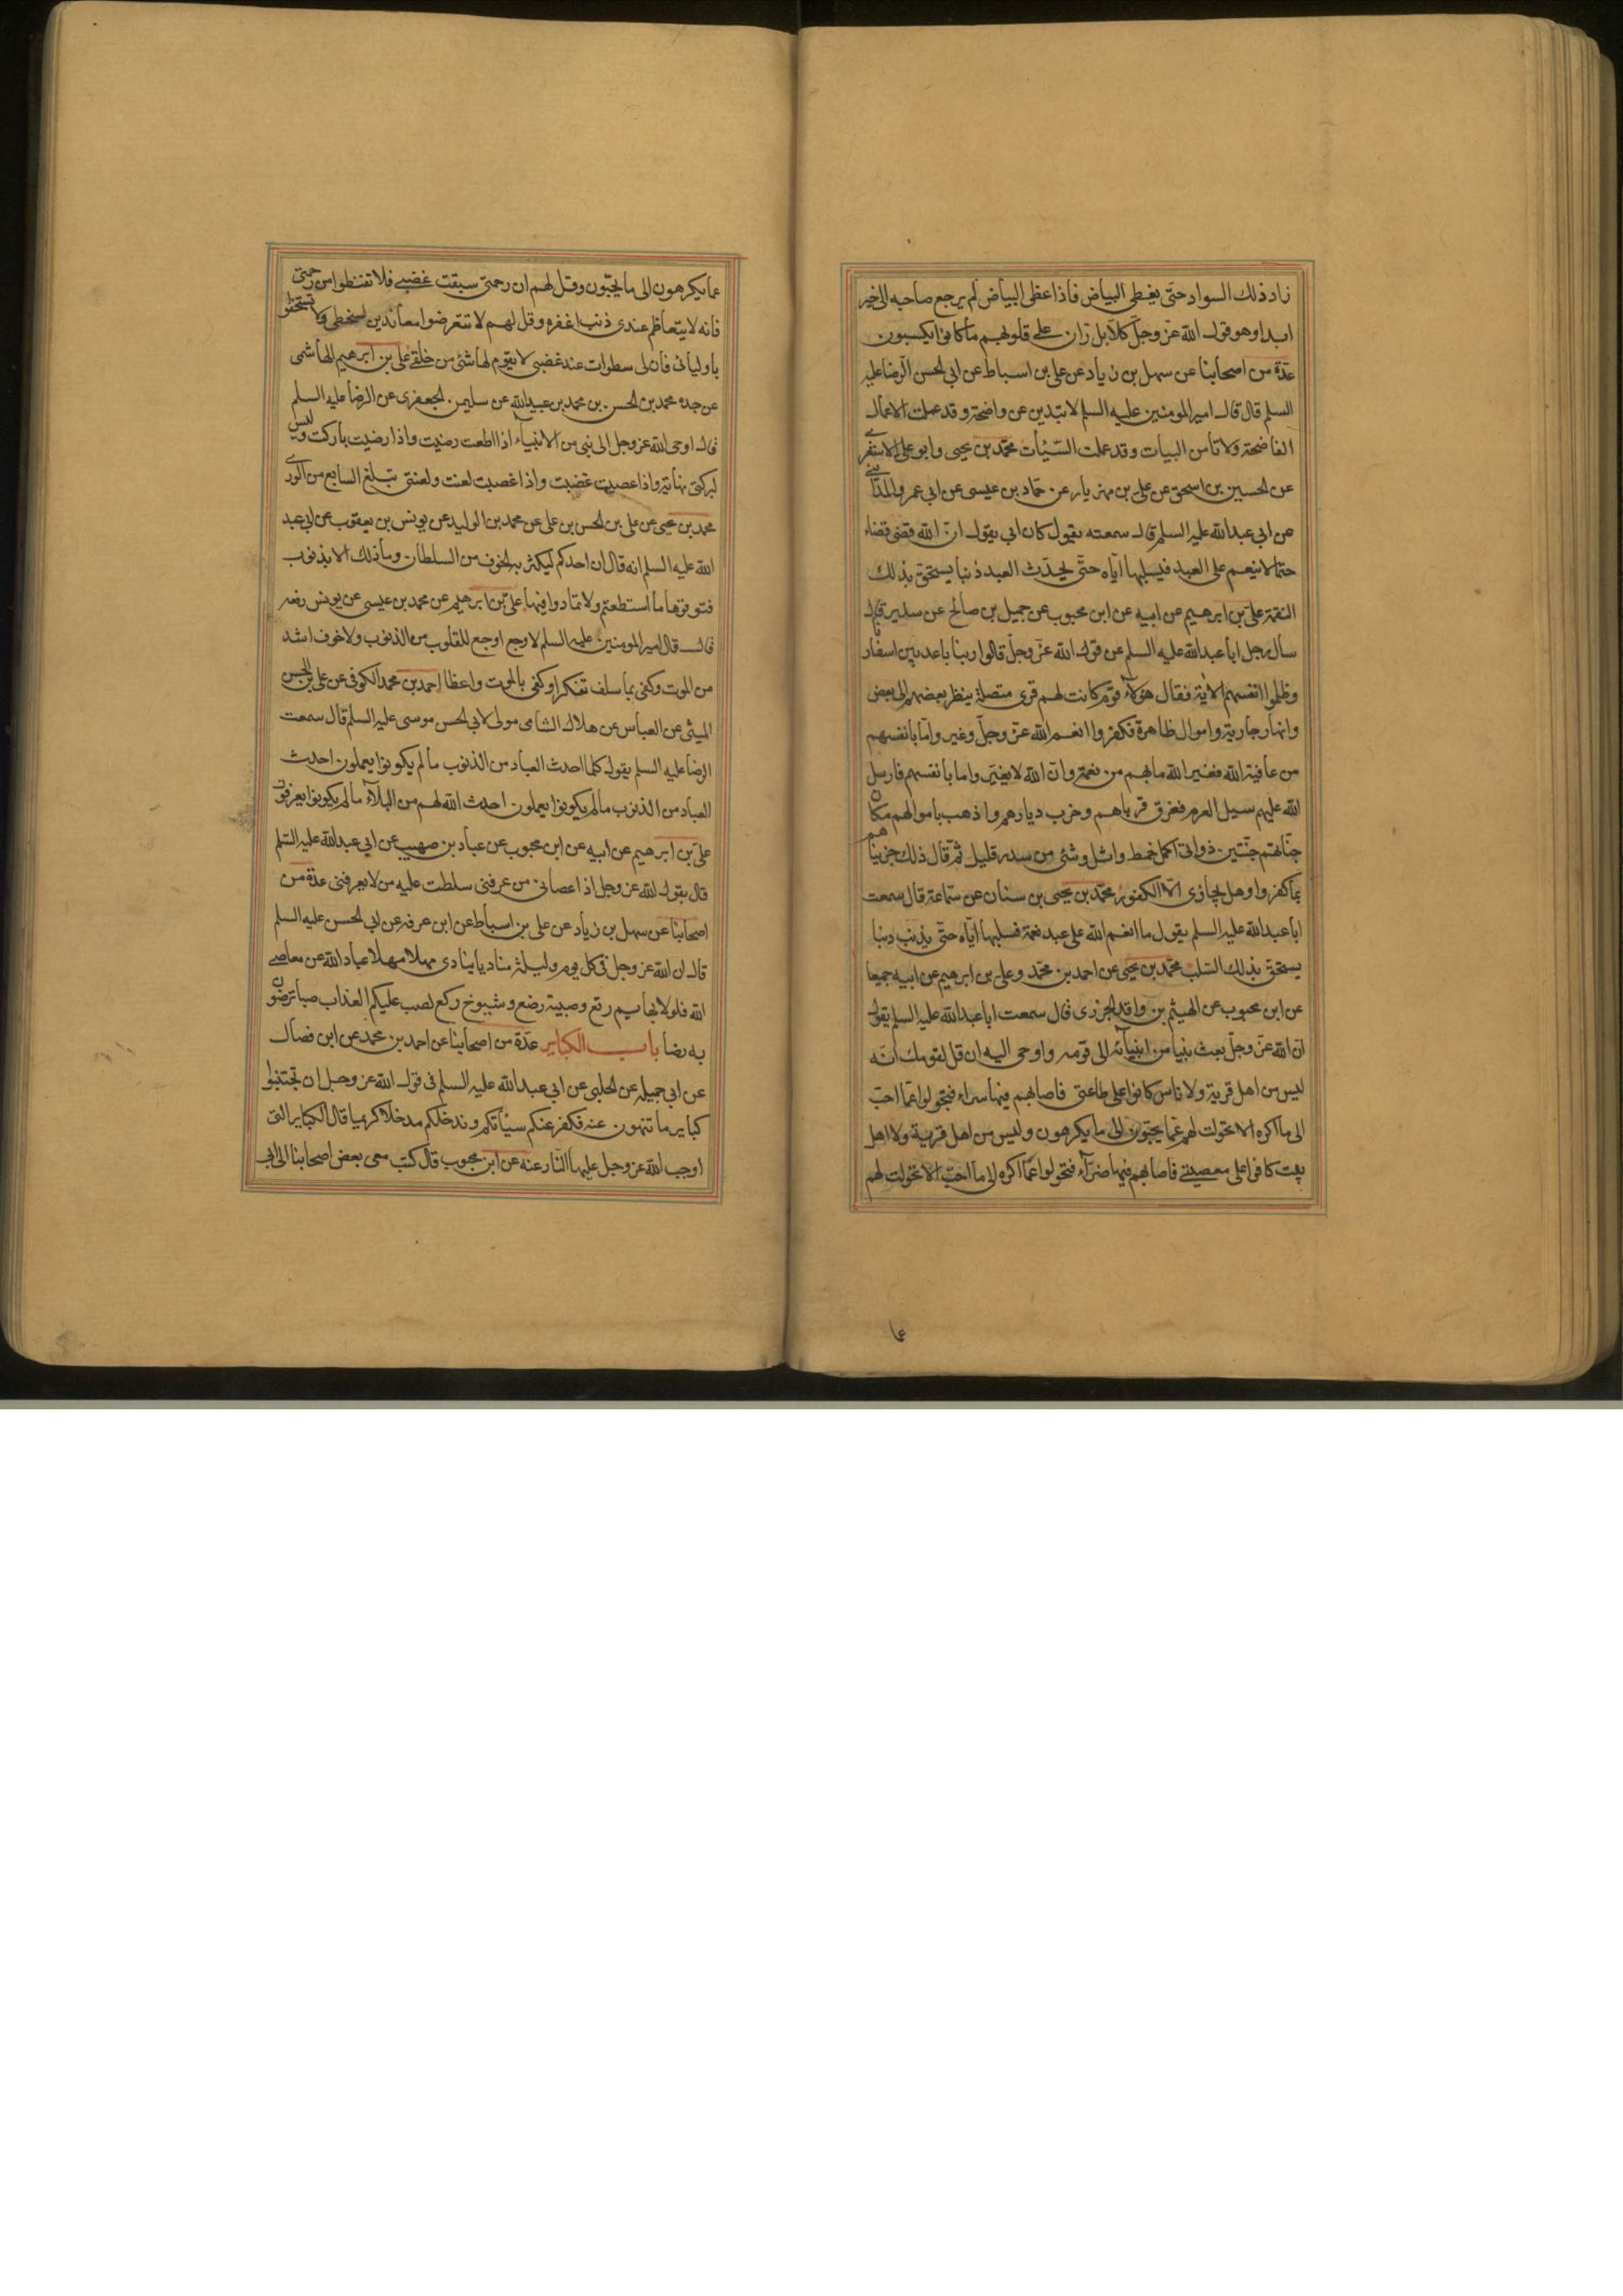 زاد ذلك السواد حتّى يغطى البياض فاذا غطى البياض لم يرجع صاحبه الى خير
ابدا وهو قول الله عزّ وجلّ كلّا بل ران على قلوبهم ما كانوا يكسبون
عدّة من اصحابنا عن سهل بن زياد عن على بن اسباط عن ابى الحسن الرّضا عليه
السلم قال قال امير المومنين عليه السلم لا تبدين عن واضحة وقد عملت الاعمال
الفاضحة ولا تأمن البيات وقد عملت السّيّأت محمّد بن يحيى وابو على الاشعرى
عن الحسين بن اسحق عن على بن مهزيار عن حمّاد بن عيسى عن ابى عمرو المدائنى
عن ابى عبد الله عليه السلم قال سمعته يقول كان ابى يقول انّ الله قضى قضاء
حتما لا ينعم على العبد فيسلبها ايّاه حتّى يحدث العبد ذنبا يستحق بذلك
النقمة علىّ بن ابرهيم عن ابيه عن ابن محبوب عن جميل بن صالح عن سدير قال
سأل رجل ابا عبد الله عليه السلم عن قول الله عزّ وجلّ قالوا ربنا باعد بين اسفارنا
وظلموا انفسهم الاية فقال هؤلاء قوم كانت لهم قرى متصلة ينظر بعضهم الى بعض
وانهار جارية واموال ظاهرة فكفروا انعم الله عزّ وجلّ وغيروا ما بانفسهم
من عافية الله فغير الله ما بهم من نعمة وانّ الله لا يغيّر واما بانفسهم فارسل
الله عليهم سيل العرم فغرق قرياهم وخرب ديارهم واذهب باموالهم مكان
جنّاتهم جنّتين ذواتى اكل خمط واثل وشئ من سدر قليل ثمّ قال ذلك جزيناهم
بما كفروا وهل يجازى الّا الكفور محمّد بن يحيى بن سنان عن سماعة قال سمعت
ابا عبد الله عليه السلم يقول ما انعم الله على عبد نعمة فسلبها ايّاه حتّى يذنب ذنبا
يستحق بذلك السّلب محمّد بن يحيى عن احمد بن محمّد وعلى بن ابرهيم عن ابيه جميعا
عن ابن محبوب عن الهيثم بن واقد الجزرى قال سمعت ابا عبد الله عليه السلم يقول
ان الله عزّ وجلّ بعث نبيا من انبيآئه الى قومه واوحى اليه ان قل لقومك انّه
ليس من اهل قرية ولا ناس كانوا على طاعتى فاصابهم فيها سراء فتحولوا عمّا احبّ
الى ما اكره الا تحولت لهم عمّا يحبّون الى ما يكرهون وليس من اهل قرية ولا اهل
بيت كانوا على معصيتى فاصابهم فيها ضرّآء فتحولوا عمّا اكره الى ما احبّ الا تحولت لهم
عما
عما يكرهون الى ما يحبّون وقل لهم ان رحمتى سبقت غضبى فلا تقنطوا من رحمتى
فانه لا يتعاظم عندى ذنب اغفره وقل لهم لا تتعرضوا معاندين لسخطى ولا تستخفوا
باوليائى فان لى سطوات عند غضبى لا يقوم لها شئ من خلقى على بن ابرهيم الهاشمى
عن جده محمد بن الحسن بن محمد بن عبيد الله عن سليمن الجعفرى عن الرضا عليه السلم
قال اوحى الله عز وجل الى نبى من الانبياء اذا اطعت رضيت واذا رضيت باركت وليس
لبركتى نهاية واذا عصيت غضبت واذا غضبت لعنت ولعنتى تبلغ السابع من الورى
محمد بن يحيى عن على بن الحسن بن على عن محمد بن الوليد عن يونس بن يعقوب عن ابى عبد
الله عليه السلم انه قال ان احدكم ليكثر به الخوف من السلطان وما ذلك الا بذنوب
فتوقوها ما استطعتم ولا تمادوا فيها على بن ابرهيم عن محمد بن عيسى عن يونس رفعه
قال قال امير المومنين عليه السلم لا وجع اوجع للقلوب من الذنوب ولا خوف اشد
من الموت وكفى بما سلف تفكرا وكفى بالموت واعظا احمد بن محمد الكوفى عن على بن الحسن
الميثمى عن العباس عن هلال الشامى مولى لابى الحسن موسى عليه السلم قال سمعت
الرضا عليه السلم يقول كلما احدث العباد من الذنوب ما لم يكونوا يعملون احدث
العباد من الذنوب ما لم يكونوا يعملون احدث الله لهم من البلاء ما لم يكونوا يعرفون
على بن ابرهيم عن ابيه عن ابن محبوب عن عباد بن صهيب عن ابى عبد الله عليه السلم
قال يقول الله عز وجل اذا عصانى من عرفنى سلطت عليه من لا يعرفنى عدة من
اصحابنا عن سهل بن زياد عن على بن اسباط عن ابن عرفه عن ابى الحسن عليه السلم
قال ان الله عز وجل فى كل يوم وليلة مناديا ينادى مهلا مهلا عباد الله عن معاصى
الله فلولا بهايم رتع وصبية رضع وشيوخ ركع لصب عليكم العذاب صبا ترضون
به رضا باب الكباير عدّة من اصحابنا عن احمد بن محمد عن ابن فضال
عن ابى جميله عن الحلبى عن ابى عبد الله عليه السلم فى قول الله عز وجل ان تجتنبوا
كباير ما تنهون عنه نكفر عنكم سيّأتكم وندخلكم مدخلا كريما قال الكباير التى
اوجب الله عز وجل عليها النّار عنه عن ابن محبوب قال كتب معى بعض اصحابنا الى ابى